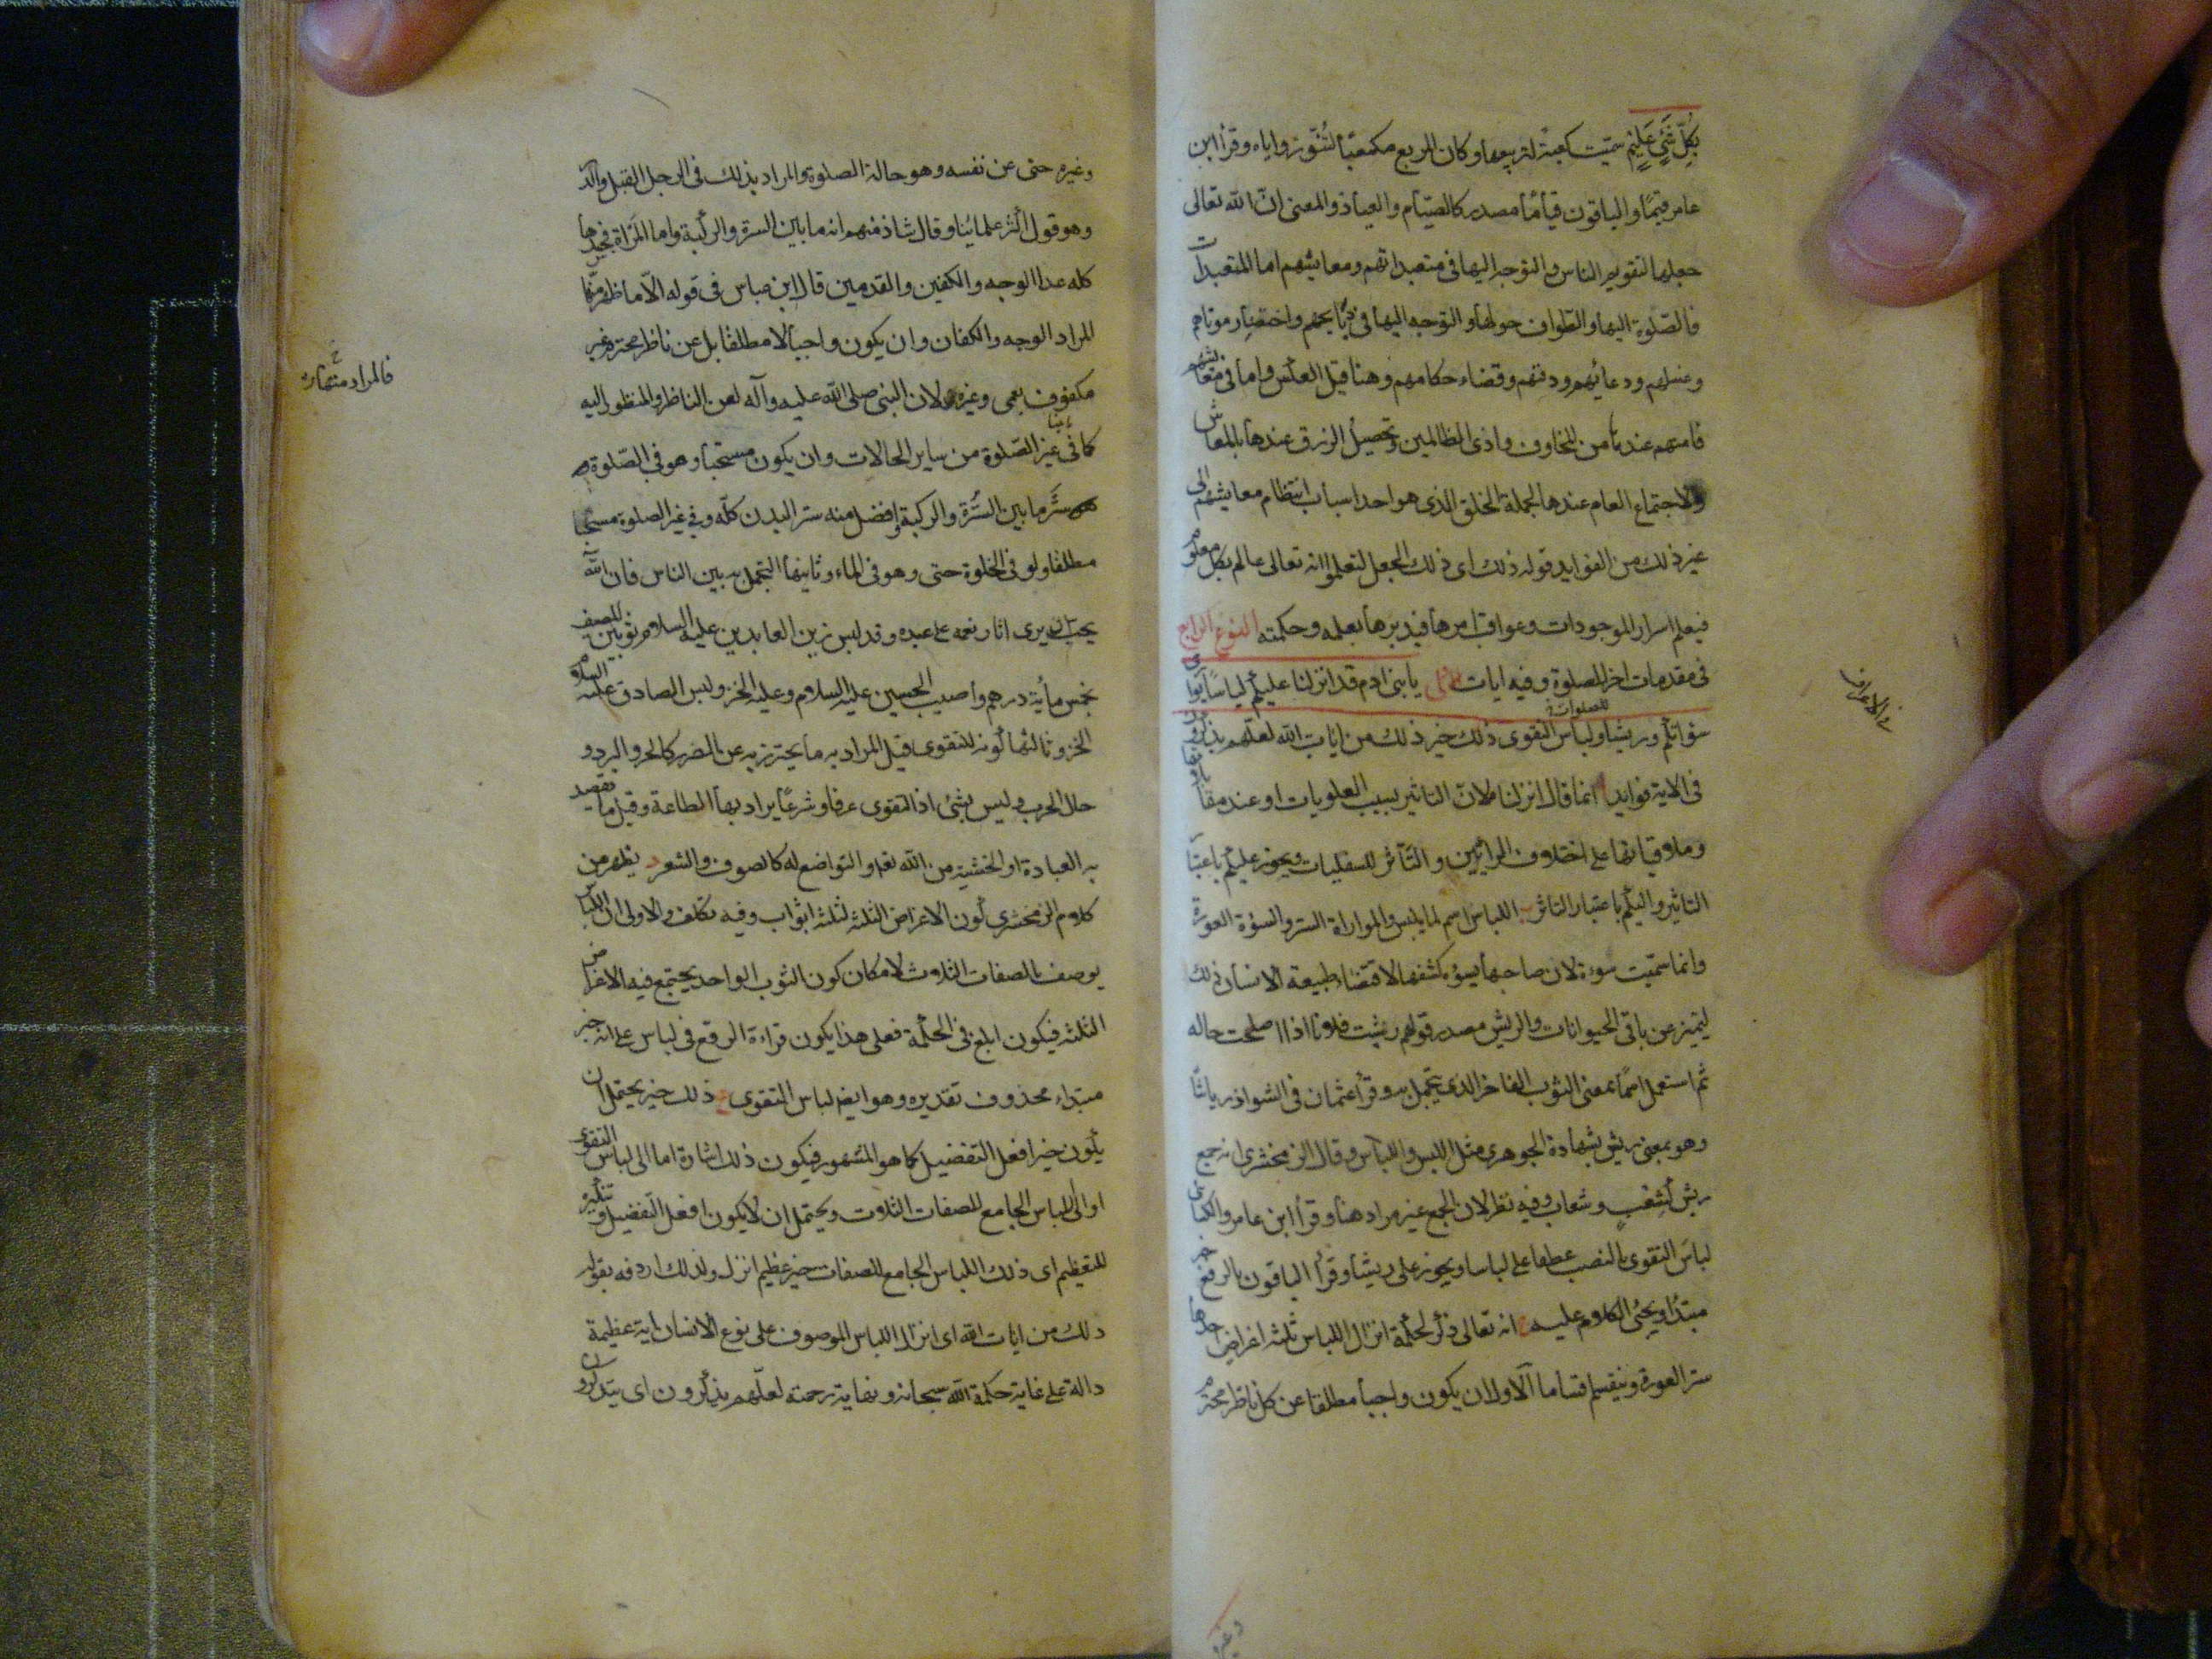 بكل شيء عليم سميت كعبة لتربيعها وكان المربع مكعبا لنتو زواياه وقرأ ابن
عامر قيما والباقون قياما مصدر كالصيام والعياذ والمعنى ان الله تعالى
جعلها لتقويم الناس والتوجه اليها في متعبداتهم ومعايشهم اما المتعبدات
فالصلوة اليها والطواف حولها والتوجه اليها في ذبايحهم واحتضار موتاهم
وغسلهم ودعائهم ودفنهم وقضاء حكامهم وهنا قيل العكس واما في معايشهم
فامنهم عندها من المخاوف واذى الظالمين وتحصيل الرزق عندها بالمعاش
والاجتماع العام عندها لجملة الخلق الذي هو احد اسباب انتظام معايشهم الى
غير ذلك من الفوايد قوله ذلك اى ذلك الجعل لتعلموا انه تعالى عالم بكل معلوم
فيعلم اسرار الموجودات وعواقب امرها فيدبرها بعلمه وحكمته النوع الرابع
في مقدمات اخر للصلوة وفيه ايات يا بنى ادم قد انزلنا عليكم لباسا يوارى
للصلوات
سؤاتكم وريشا ولباس التقوى ذلك خير ذلك من ايات الله لعلهم يذكرون
في الاية فوايد ا انما قال انزلنا لان التاثير بسبب العلويات او عند مقابلتها
وملاقياتها على اختلاف الرايين والتأثر للسفليات ويجوز عليكم باعتبار
التاثير واليكم باعتبار التاثر ب اللباس اسم لما يلبس والمواراة الستر والسؤة العورة
وانما سميت سوءة لان صاحبها يسؤه كشفها لاقتضاء طبيعة الانسان ذلك
ليتميز عن باقي الحيوانات والريش مصدر قولهم ريشت فلانا اذا اصلحت حاله
ثم استعمل اسما بمعنى الثوب الفاخر الذي يتجمل به وقرأ عثمان في الشواذ رياشا
وهو بمعنى ريش بشهادة الجوهرى مثل اللبس واللباس وقال الزمخشرى انه جمع
ريش كشعب وشعاب وفيه نظر لان الجمع غير مراد هنا وقرأ ابن عامر والكسائى
لباس التقوى بالنصب عطفا على لباسا ويجوز على ريشا وقرأ الباقون بالرفع خبر
مبتدا ويجئ الكلام عليه ج انه تعالى ذكر لحكمة انزال اللباس ثلثه اغراض احدها
ستر العورة وينقسم اقساما الاول ان يكون واجبا مطلقا عن كل ناظر محترم
وغيره
في الاعراف
وغيره حتى عن نفسه وهو حالة الصلوة والمراد بذلك في الرجل القبل والدبر
وهو قول اكثر علمائنا وقال شاذ منهم انه ما بين السرة والركبة واما المرأة فجسدها
كله عدا الوجه والكفين والقدمين قال ابن عباس في قوله الا ما ظهر منها
المراد الوجه والكفان وان يكون واجبا لا مطلقا بل عن ناظر محترم غير
مكفوف بعمى وغيره لان النبي صلى الله عليه وآله لعن الناظر والمنظور اليه
كما في غير الصلوة من ساير الحالات وان يكون مستحبا وهو في الصلوة
ستر ما بين السرة والركبة وافضل منه ستر البدن كله وفي غير الصلوة مستحبا
مطلقا ولو في الخلوة حتى وهو في الماء وثانيها التجمل به بين الناس فان الله
يحب ان يرى اثار نعمه على عبده وقد لبس زين العابدين عليه السلام ثوبين للصيف
بخمس مأية درهم واصيب الحسين عليه السلام وعليه الخز ولبس الصادق عليه السلام
الخز وثالثها كونه للتقوى قيل المراد به ما يحترز به عن الضرر كالحر والبرد و
حال الحرب وليس بشئ اذ التقوى عرفا وشرعا يراد بها الطاعة وقيل ما يقصد
به العبادة او الخشية من الله تعالى والتواضع له كالصوف والشعر د يظهر من
كلام الزمخشرى كون الاغراض الثلثه لثلثة اثواب وفيه تكلف والاولى ان اللباس
يوصف بالصفات الثلاث لامكان كون الثوب الواحد يجتمع فيه الاغراض
الثلثه فيكون ابلغ في الحكمة فعلى هذا يكون قراءة الرفع في لباس على انه خبر
مبتداء محذوف تقديره وهو ايضا لباس التقوى ذلك خير يحتمل ان
يكون خير افعل التفضيل كما هو المشهور فيكون ذلك اشارة اما الى لباس التقوى
او الى اللباس الجامع للصفات الثلاث ويحتمل ان لا يكون افعل التفضيل وتنكيره
للتعظيم اى ذلك اللباس الجامع للصفات خير عظيم انزل ولذلك اردفه بقوله
ذلك من ايات الله اى انزال اللباس الموصوف على نوع الانسان اية عظيمة
دالة على غاية حكمة الله سبحانه ونهاية رحمته لعلهم يذكرون اى يتذكرون
فالمراد